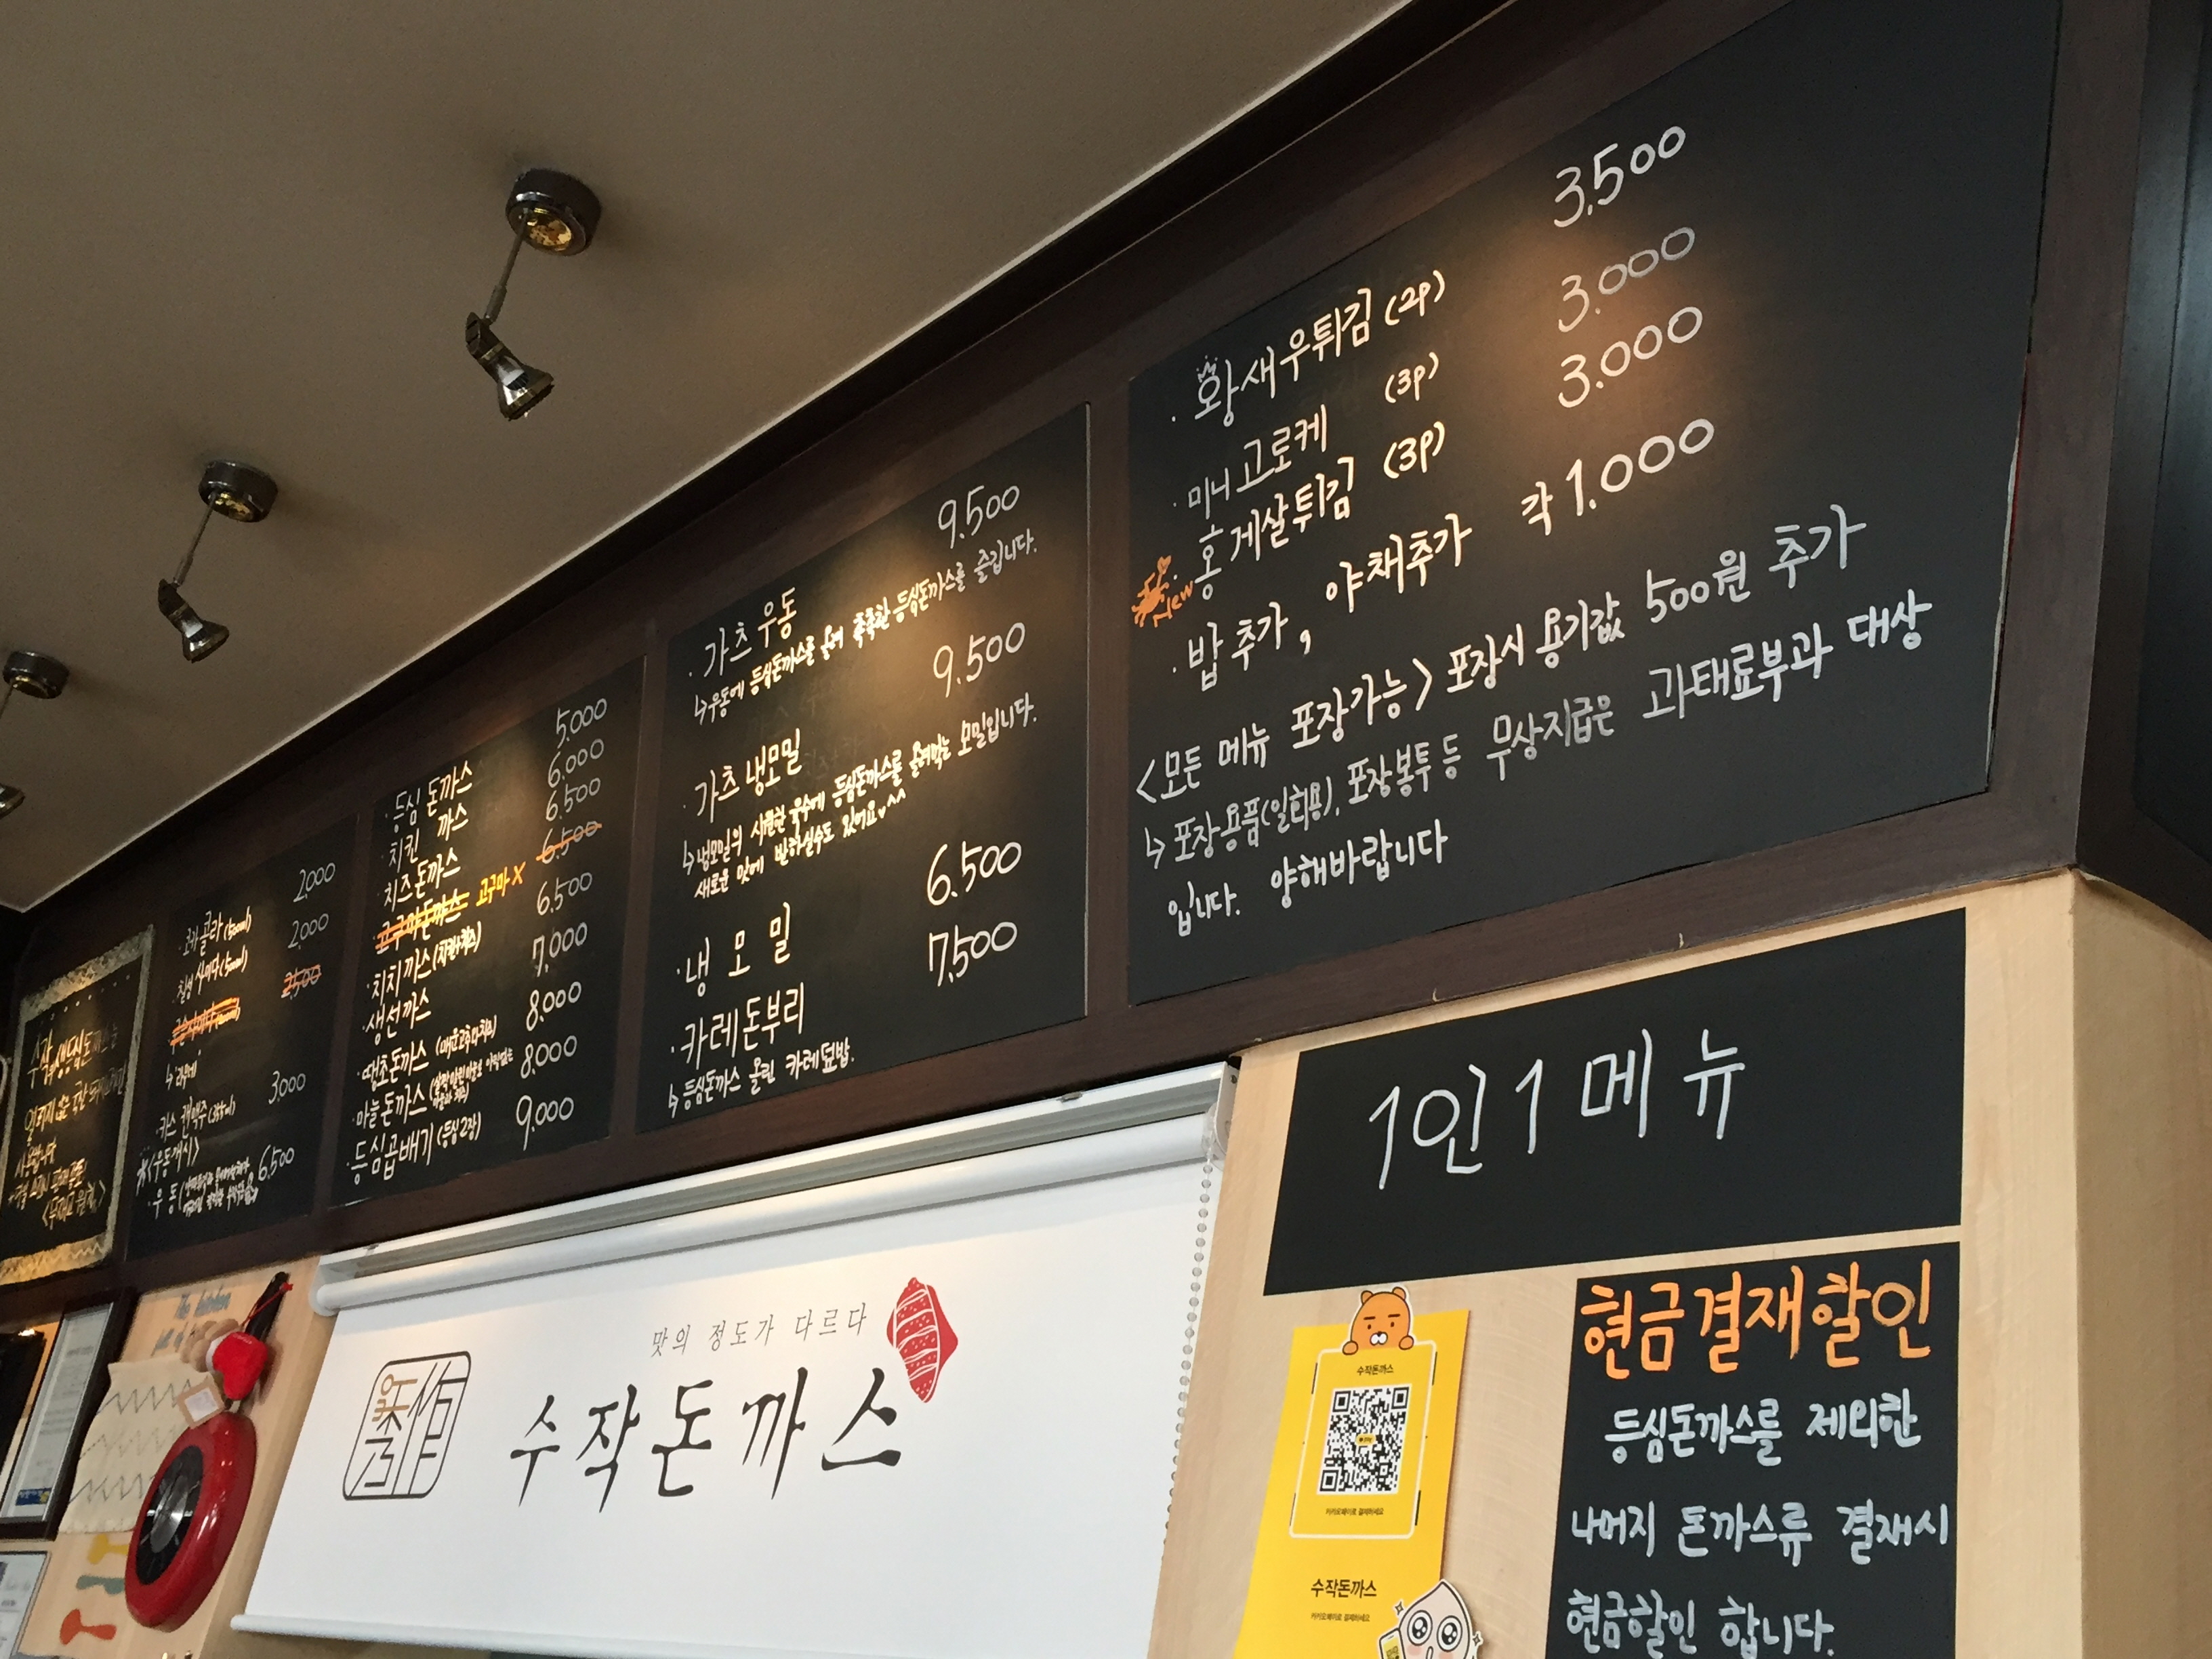 코카콜라(500ml) 2,000
칠성 사이다(500ml) 2,000
2,500
카스 캔맥주(355ml) 3,000
<우동개시>
우동 6,500
등심 돈까스 5,000
치킨 까스 6,000
치즈돈까스 6,500
고구마돈까스 고구마 X 6,500
치치까스(치킨+치즈) 6,500
생선까스 7,000
땡초돈까스 (매운고추+치즈) 8,000
마늘돈까스 8,000
등심곱배기(등심2장) 9,000
· 가츠우동 9,500
↳우동에 등심돈까스를 올려 촉촉한 등심돈까스를 즐깁니다.
· 가츠냉모밀 9,500
↳냉모밀의 시원한 육수에 등심돈까스를 올려먹는 모밀입니다.
새로운 맛에 반하실수도 있어요♥^^
· 냉 모 밀 6,500
· 카레돈부리 7,500
↳등심돈까스 올린 카레덮밥.
· 왕새우튀김 (2P) 3,500
· 미니고로케 (3P) 3.000
New · 홍게살튀김 (3P) 3.000
· 밥추가, 야채추가 각 1.000
<모든 메뉴 포장가능> 포장시 용기값 500원 추가
↳ 포장용품(일회용), 포장봉투 등 무상지급은 과태료부과 대상
입니다. 양해바랍니다
1인 1 메뉴
맛의 정도가 다르다
수작돈까스
수작돈까스
카카오페이로 결제하세요
수작돈까스
카카오페이로 결제하세요
현금결재할인
등심돈까스를 제외한
나머지 돈까스류 결재시
현금할인 합니다.